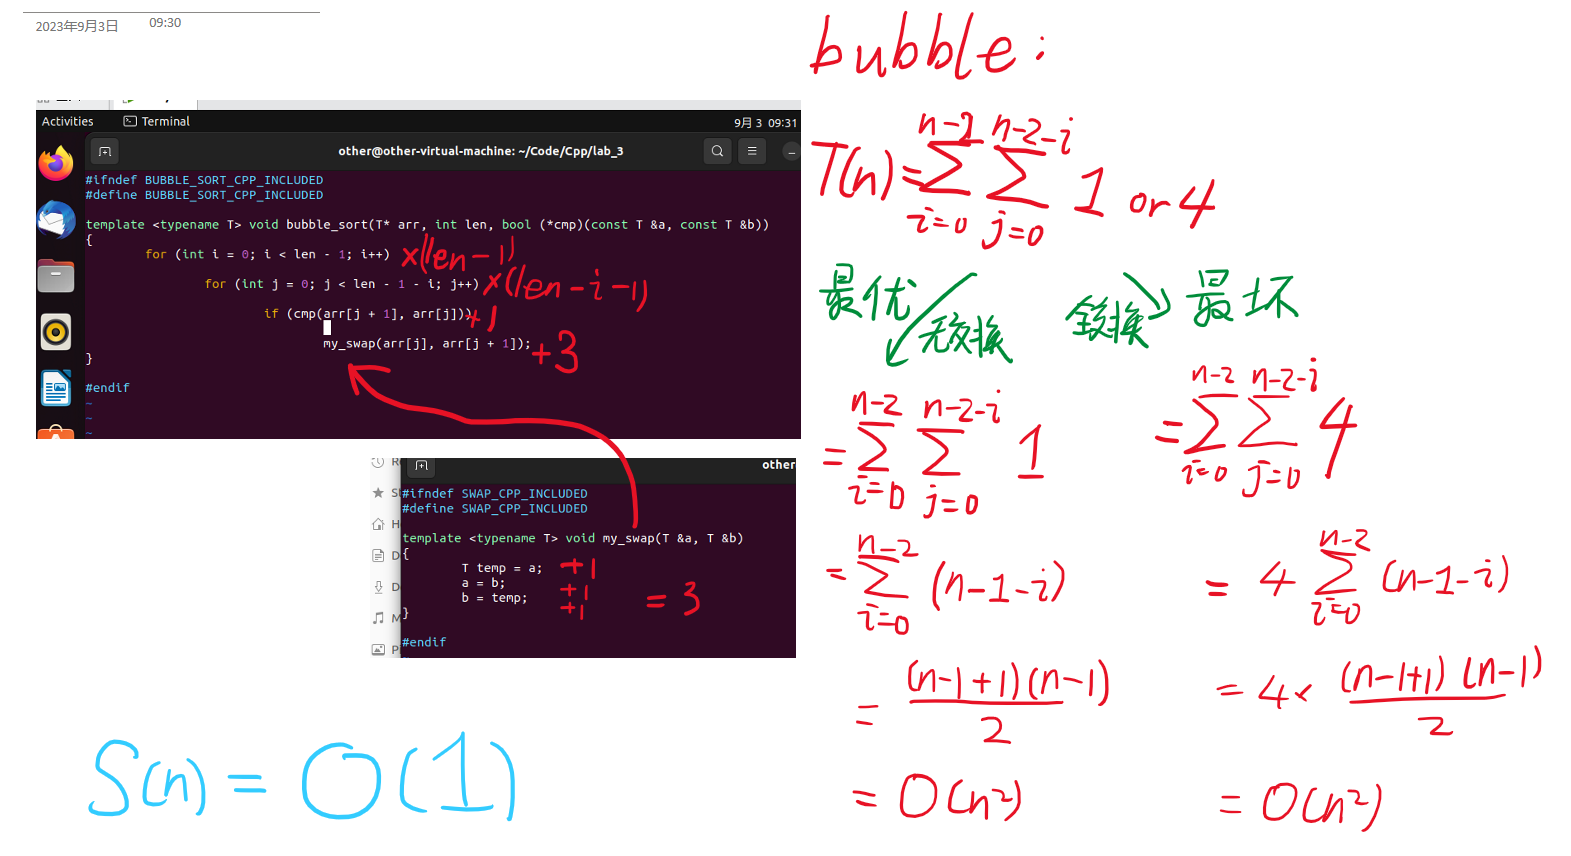 2023年9月3日 09:30
Activities Terminal 9月 3 09:31
other@other-virtual-machine: ~/Code/Cpp/lab_3
#ifndef BUBBLE_SORT_CPP_INCLUDED
#define BUBBLE_SORT_CPP_INCLUDED
template <typename T> void bubble_sort(T* arr, int len, bool (*cmp)(const T &a, const T &b))
{
for (int i = 0; i < len - 1; i++) ×(len-1)
for (int j = 0; j < len - 1 - i; j++) ×(len-i-1)
if (cmp(arr[j + 1], arr[j])) +1
my_swap(arr[j], arr[j + 1]); +3
}
#endif
~
~
~
other
#ifndef SWAP_CPP_INCLUDED
#define SWAP_CPP_INCLUDED
template <typename T> void my_swap(T &a, T &b)
{
T temp = a; +1
a = b; +1
b = temp; +1
= 3
}
#endif
S(n) = O(1)
bubble:
n-2 n-2-i
T(n)=∑ ∑ 1 or 4
i=0 j=0
最优 无交换
n-2 n-2-i
=∑ ∑ 1
i=0 j=0
n-2
=∑ (n-1-i)
i=0
(n-1+1)(n-1)
=
2
= O(n²)
全交换 最坏
n-2 n-2-i
=∑ ∑ 4
i=0 j=0
n-2
= 4 ∑ (n-1-i)
i=0
(n-1+1)(n-1)
= 4×
2
= O(n²)